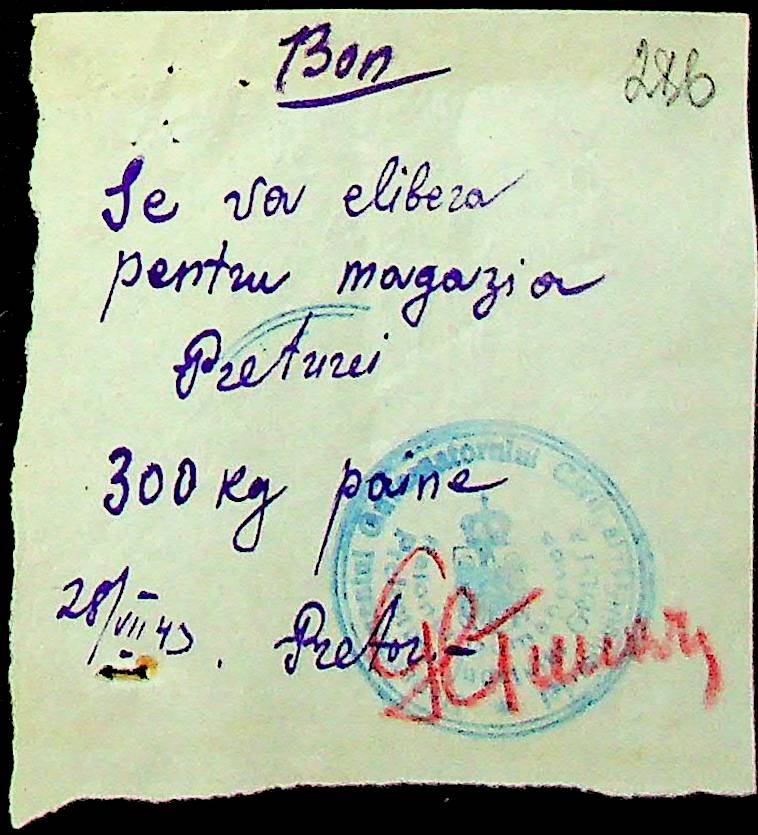 Bon
286
Se va elibera
pentru magazia
Preturei
300 kg paine
28/VII 43. Pretor,
Guvernatorului Civil al